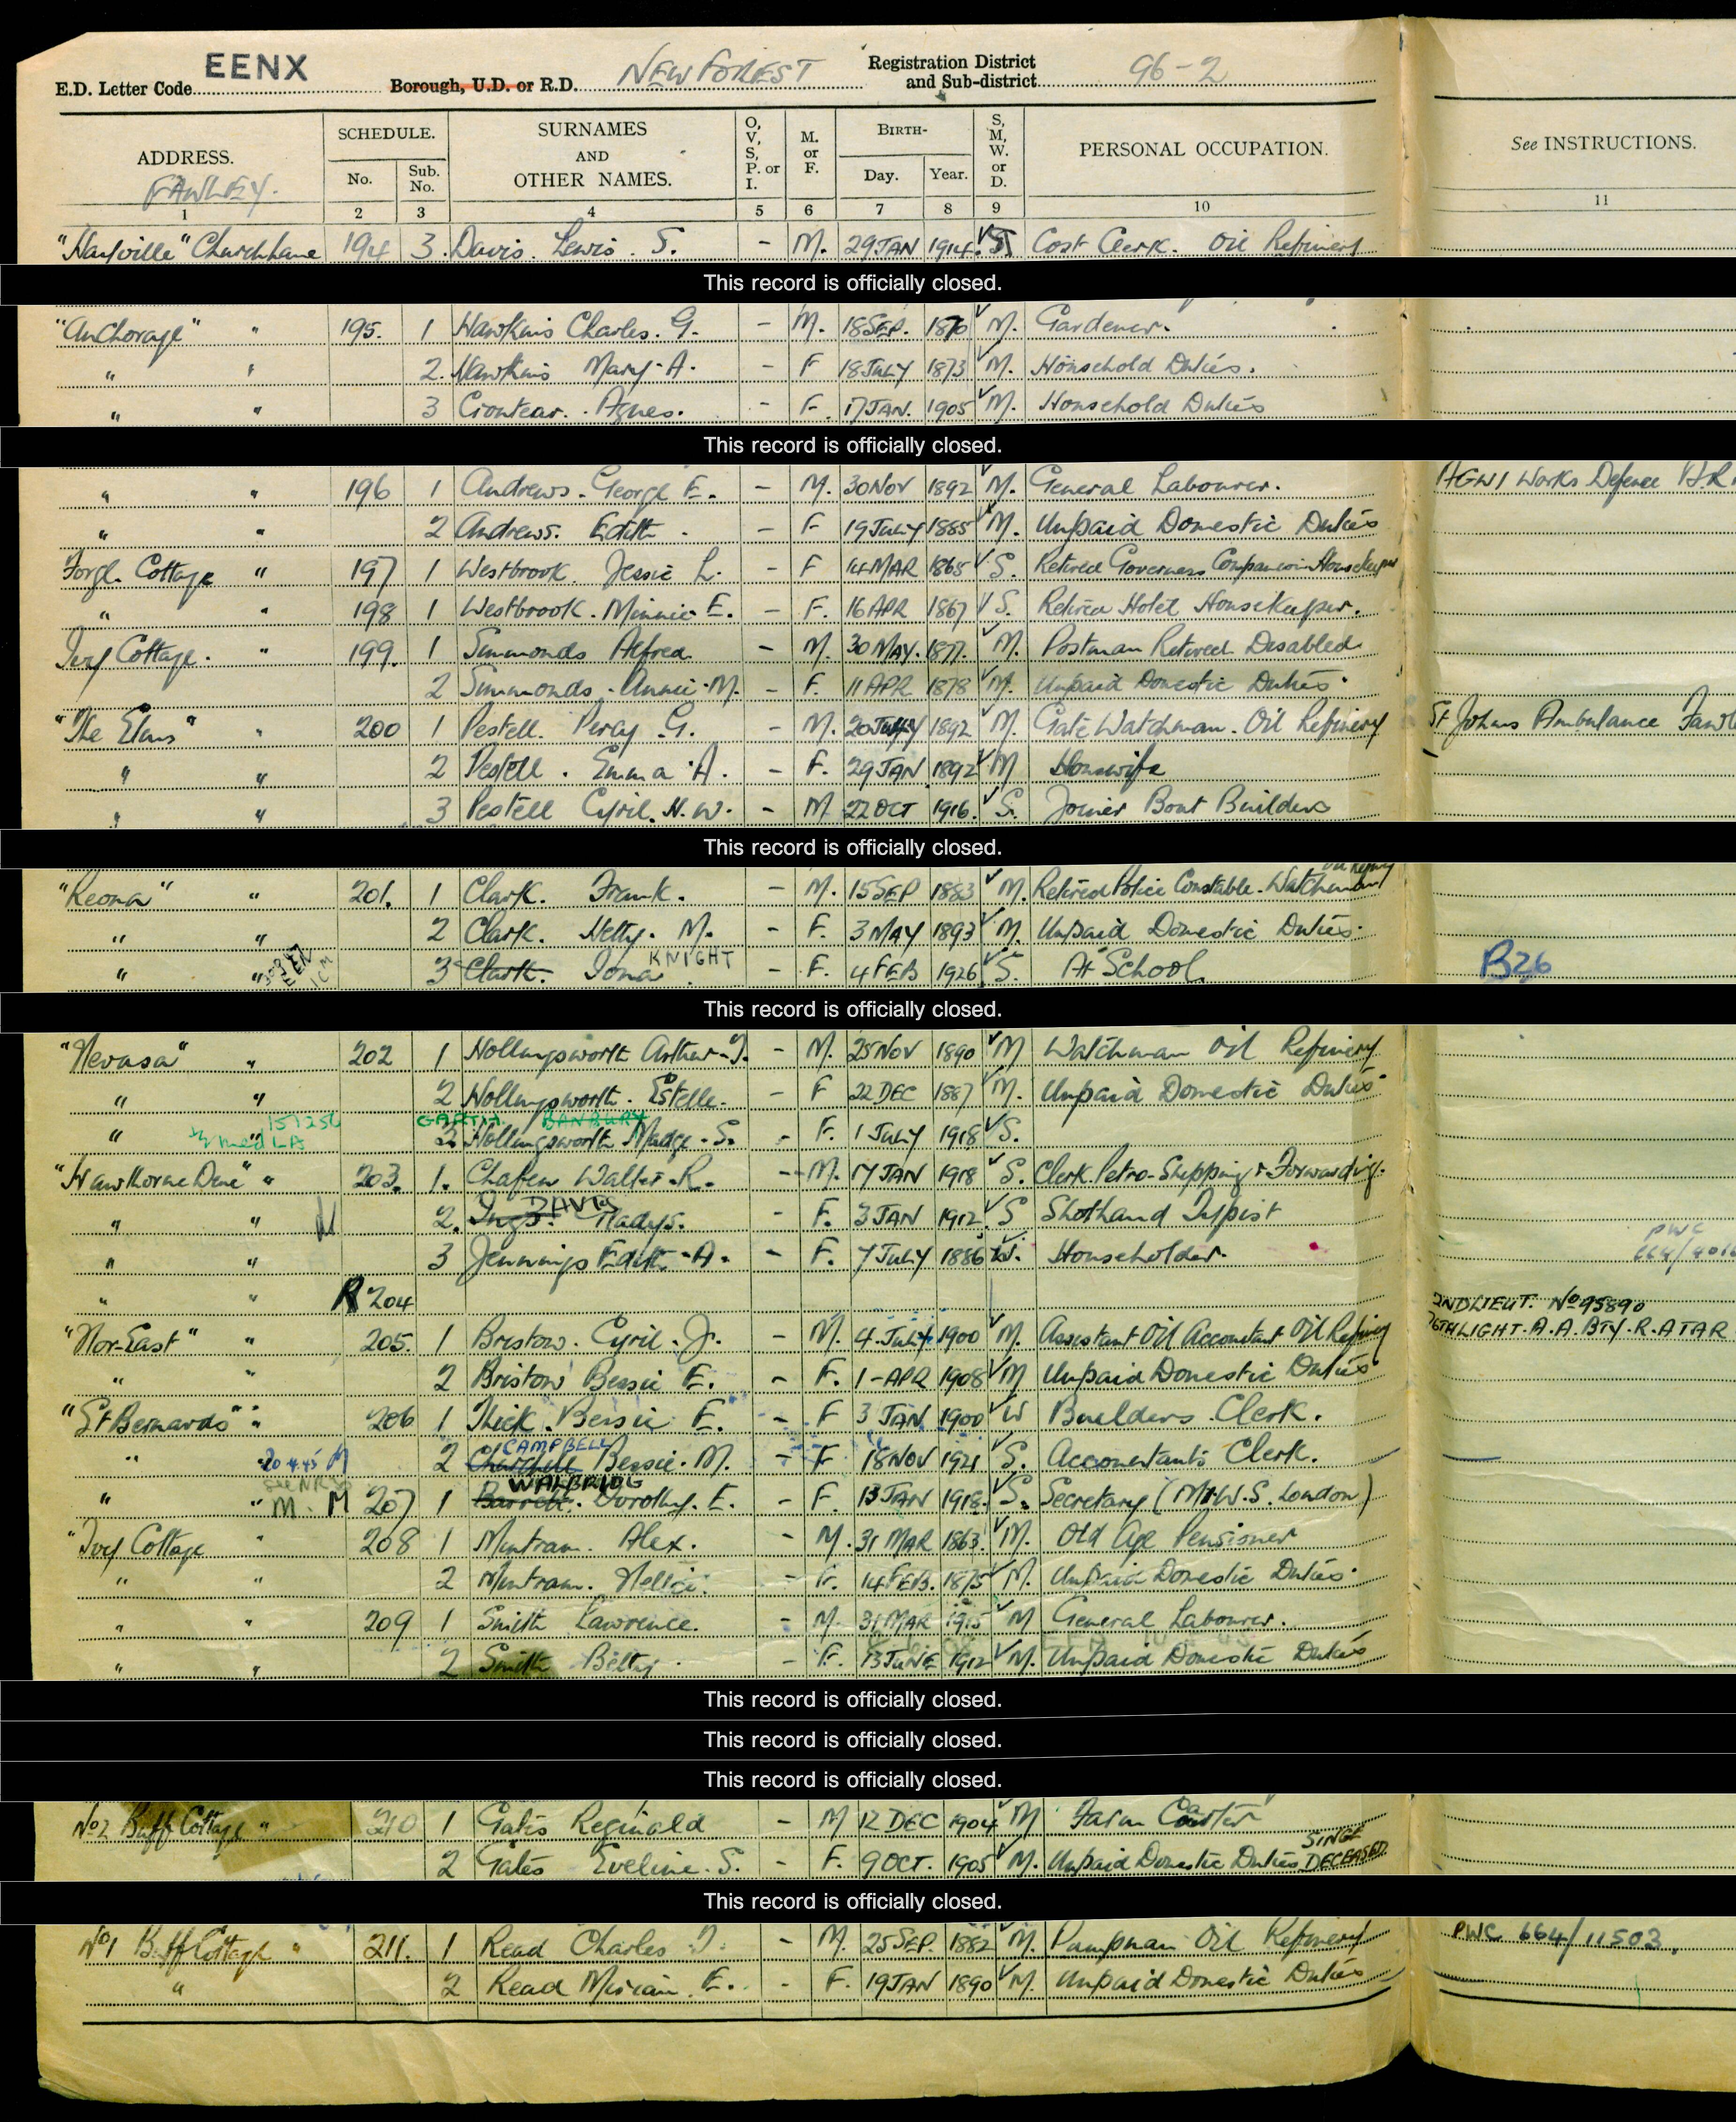 EENX
E.D. Letter Code Borough, U.D. or R.D. NEW FOREST Registration District and Sub-district 96-2
ADDRESS. SCHEDULE. No. Sub. No. SURNAMES AND OTHER NAMES. O, V, S, P. or I. M. or F. BIRTH- Day. Year. S, M, W. or D. PERSONAL OCCUPATION. See INSTRUCTIONS.
FAWLEY.
1 2 3 4 5 6 7 8 9 10 11
Church Lane 194 3. Davis. Lewis. S. - M. 29 JAN 1914. S Cost Clerk. Oil Refinery
This record is officially closed.
"Anchorage" " 195. 1 Hawkins Charles. G. - M. 18 SEP. 1870 M. Gardener.
" " 2. Hawkins Mary. A. - F 18 JULY 1873 M. Household Duties.
" " 3 Agnes. - F. 17 JAN. 1905 M. Household Duties
This record is officially closed.
" " 196 1 Andrews. George E. - M. 30 NOV 1892 M. General Labourer. AGWI Works Defence
" " 2 Andrews. Edith. - F 19 JULY 1885 M. Unpaid Domestic Duties
Forge Cottage " 197 1 Westbrook. Jessie L. - F 14 MAR 1865 S. Retired Governess Companion Housekeeper
" " 198 1 Westbrook. Minnie E. - F. 16 APR 1867 S. Retired Hotel Housekeeper.
Ivy Cottage. " 199. 1 Simmonds Alfred - M. 30 MAY. 1877. M. Postman Retired Disabled
2 Simmonds. Annie. M. - F. 11 APR 1878 M. Unpaid Domestic Duties
"The Elms" " 200 1 Pestell. Percy G. - M. 20 JULY 1892 M. Gate Watchman. Oil Refinery St Johns Ambulance
" " 2 Pestell. Emma A. - F. 29 JAN 1892 M Housewife
" " 3 Pestell Cyril. H. W. - M 22 OCT 1916. S. Joiner Boat Builders
This record is officially closed.
"Reona" " 201. 1 Clark. Frank. - M. 15 SEP 1883 M. Retired Police Constable. Watchman Oil Refinery
" " 2 Clark. Hetty. M. - F. 3 MAY 1893 M. Unpaid Domestic Duties.
" " 3 Clark. Iona KNIGHT - F. 4 FEB 1926 S. At School. B26
This record is officially closed.
"Nevasa" " 202 1 Hollingsworth Arthur. - M. 25 NOV 1890 M Watchman Oil Refinery
" " 2 Hollingsworth. Estelle. - F 22 DEC 1887 M. Unpaid Domestic Duties
GARTH BANBURY
" " Hollingsworth Madge. S. - F. 1 JULY 1918 S.
"Hawthorne Dene" " 203. 1. Chafen Walter. R. - M. 17 JAN 1918 S. Clerk. Petro-Shipping & Forwarding.
DAVIS
" " 2. Gladys. - F. 3 JAN 1912 S Shothand Typist
" " 3 Jennings Edith. A. - F. 7 JULY 1886 W. Householder. PWC
" " R 204
2ND LIEUT. No 95890
"Nor-East" " 205. 1 Bristow. Cyril. J. - M. 4 JULY 1900 M. Assistant Oil Accountant Oil Refinery LIGHT. A. A. BTY. R. A T A R
" " 2 Bristow Bessie E. - F. 1 - APR 1908 M Unpaid Domestic Duties
"St Bernards" " 206 1 Thick. Bessie E. - F 3 JAN 1900 W Builders Clerk.
CAMPBELL
" 20.4.45 M 2 Churchill Bessie. M. - F 18 NOV 1921 S. Accountants Clerk.
WALBRIDG
" " M. M 207 1 Barrett. Dorothy. E. - F. 13 JAN 1918. S. Secretary (Mr W. S. London)
"Ivy Cottage " 208 1 Mintram. Alex. - M. 31 MAR 1863. M. Old Age Pensioner
" " 2 Mintram. Nellie. - F. 14 FEB. 1875 M. Unpaid Domestic Duties.
" " 209 1 Smith Lawrence. - M. 31 MAR 1915 M General Labourer.
" " 2 Smith Betty. - F. 13 JUNE 1912 M. Unpaid Domestic Duties
This record is officially closed.
This record is officially closed.
This record is officially closed.
No 2 Buff Cottage " 210 1 Gates Reginald - M 12 DEC 1904 M Farm Carter
2 Gates Eveline. S. - F. 9 OCT. 1905 M. Unpaid Domestic Duties SINCE DECEASED.
This record is officially closed.
No 1 Buff Cottage " 211. 1 Read Charles - M. 25 SEP. 1882 M. Pumpman Oil Refinery PWC 664/11503.
" 2 Read Miriam. E. - F. 19 JAN 1890 M. Unpaid Domestic Duties